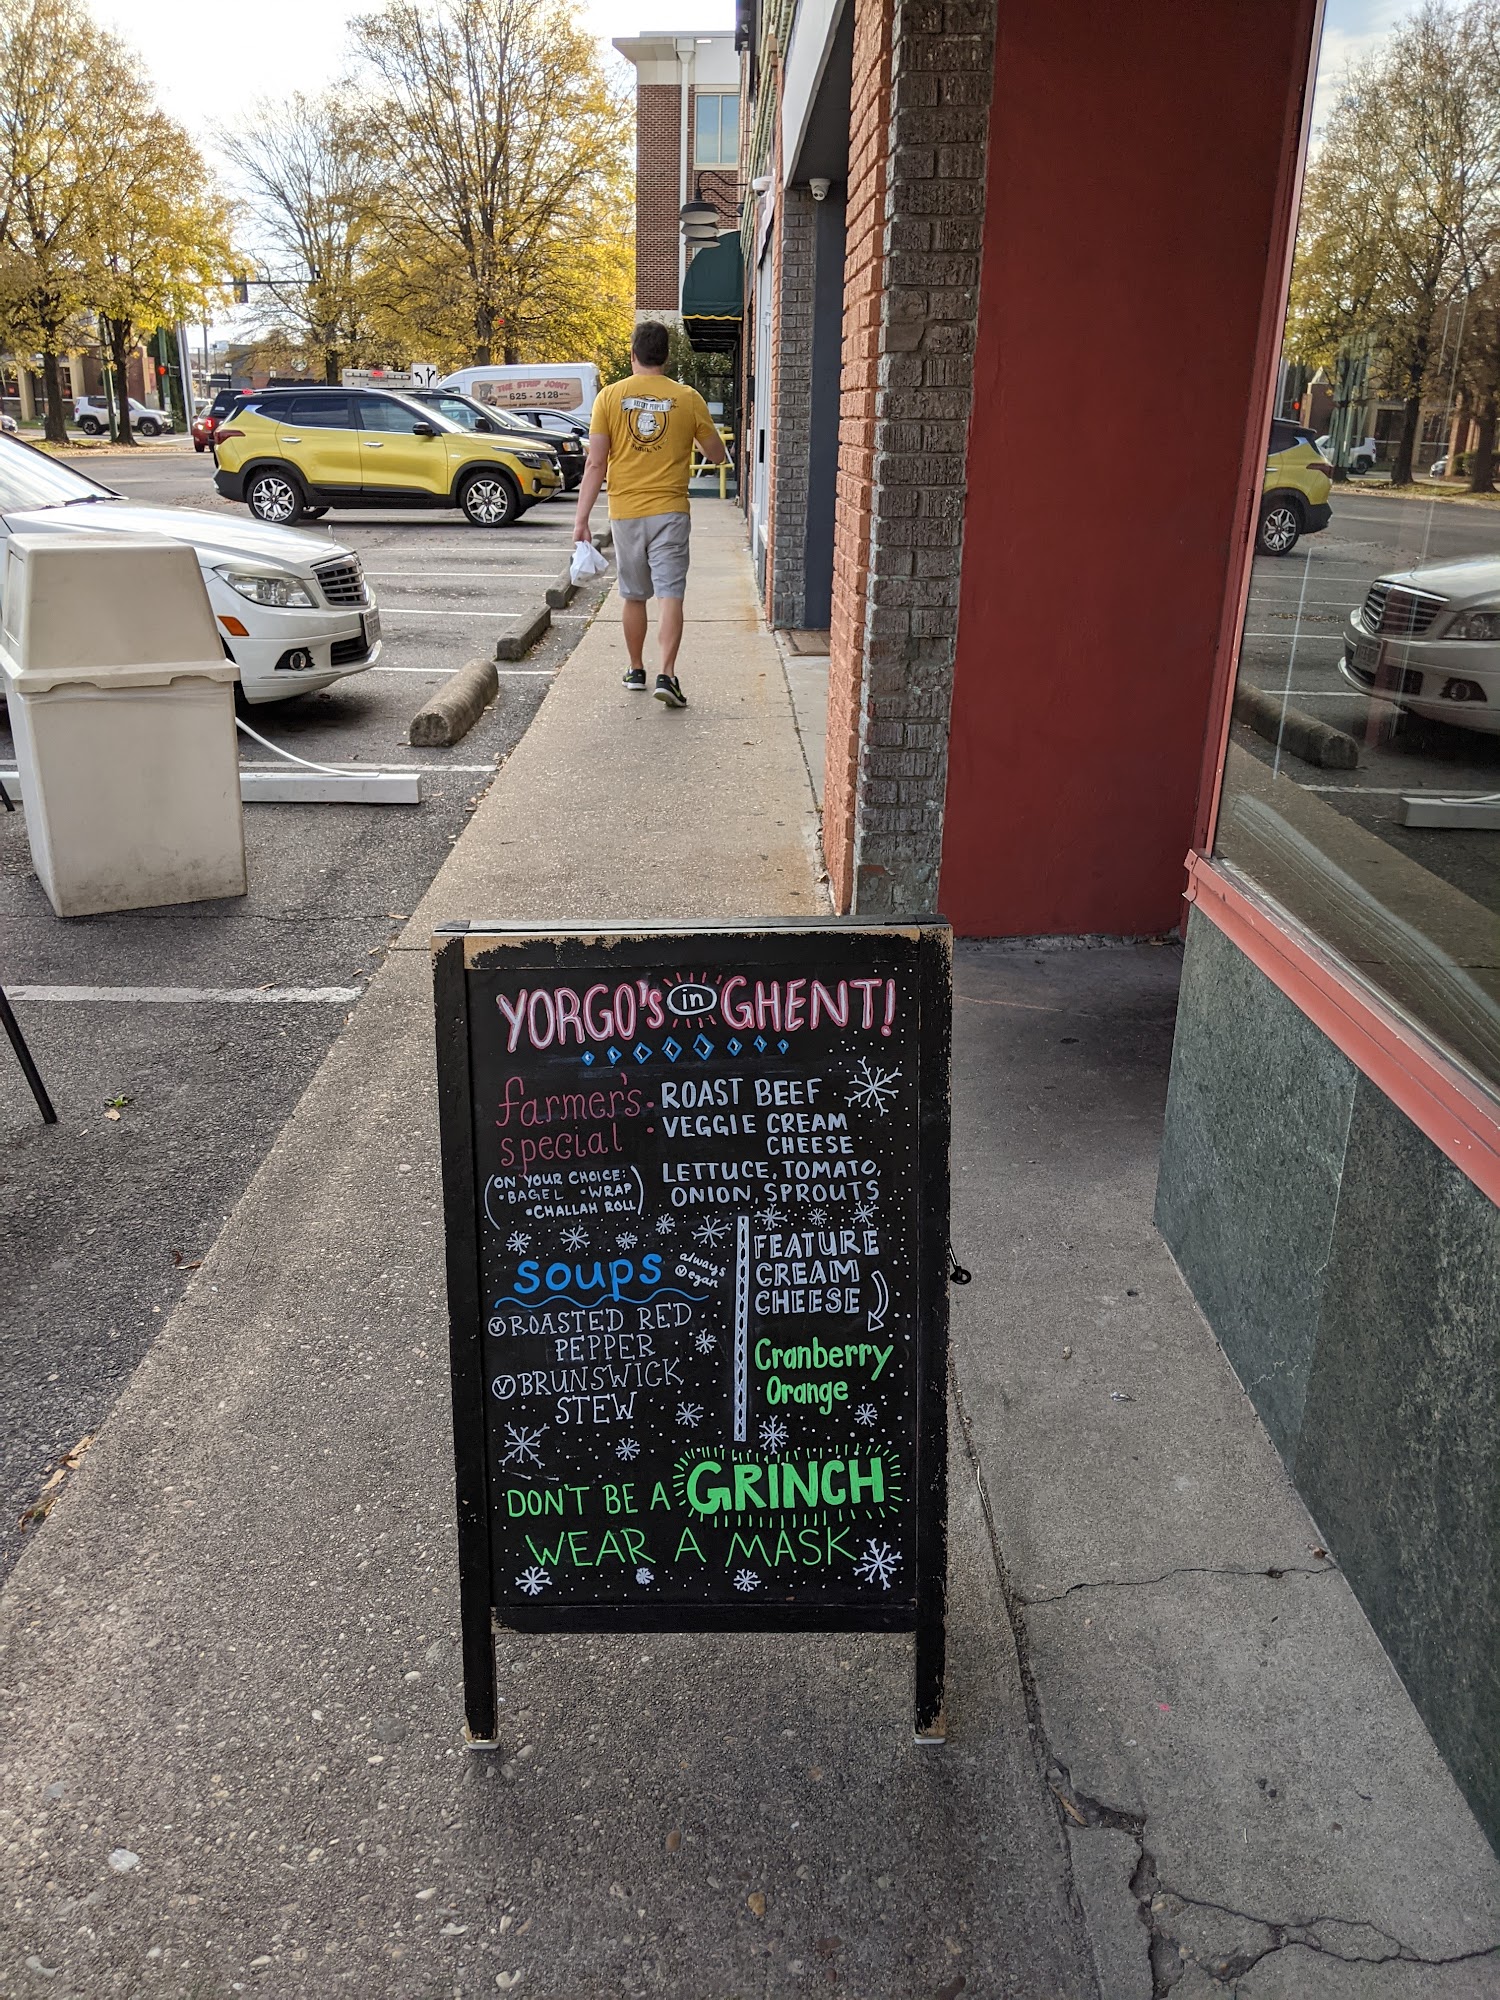 THE STRIP JOINT
625-2128
YORGO'S in GHENT!
farmer's
special
(ON YOUR CHOICE:
• BAGEL • WRAP
• CHALLAH ROLL)
• ROAST BEEF
• VEGGIE CREAM
CHEESE
LETTUCE, TOMATO,
ONION, SPROUTS
soups
always
vegan
Ⓥ ROASTED RED
PEPPER
Ⓥ BRUNSWICK
STEW
FEATURE
CREAM
CHEESE
Cranberry
Orange
DON'T BE A GRINCH
WEAR A MASK